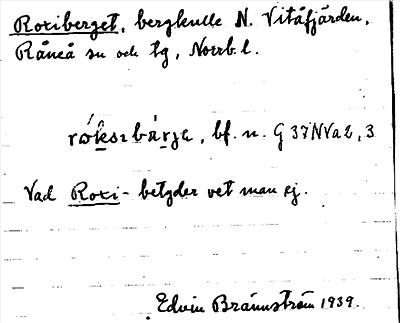 Roxiberget, bergkulle N. Vitåfjärden,
Råneå sn och tg, Norrb. l.
rók̲sɩbàrja, bf. n. G 37NVa2, 3
Vad Roxi- betyder vet man ej.
Edvin Brännström 1939.